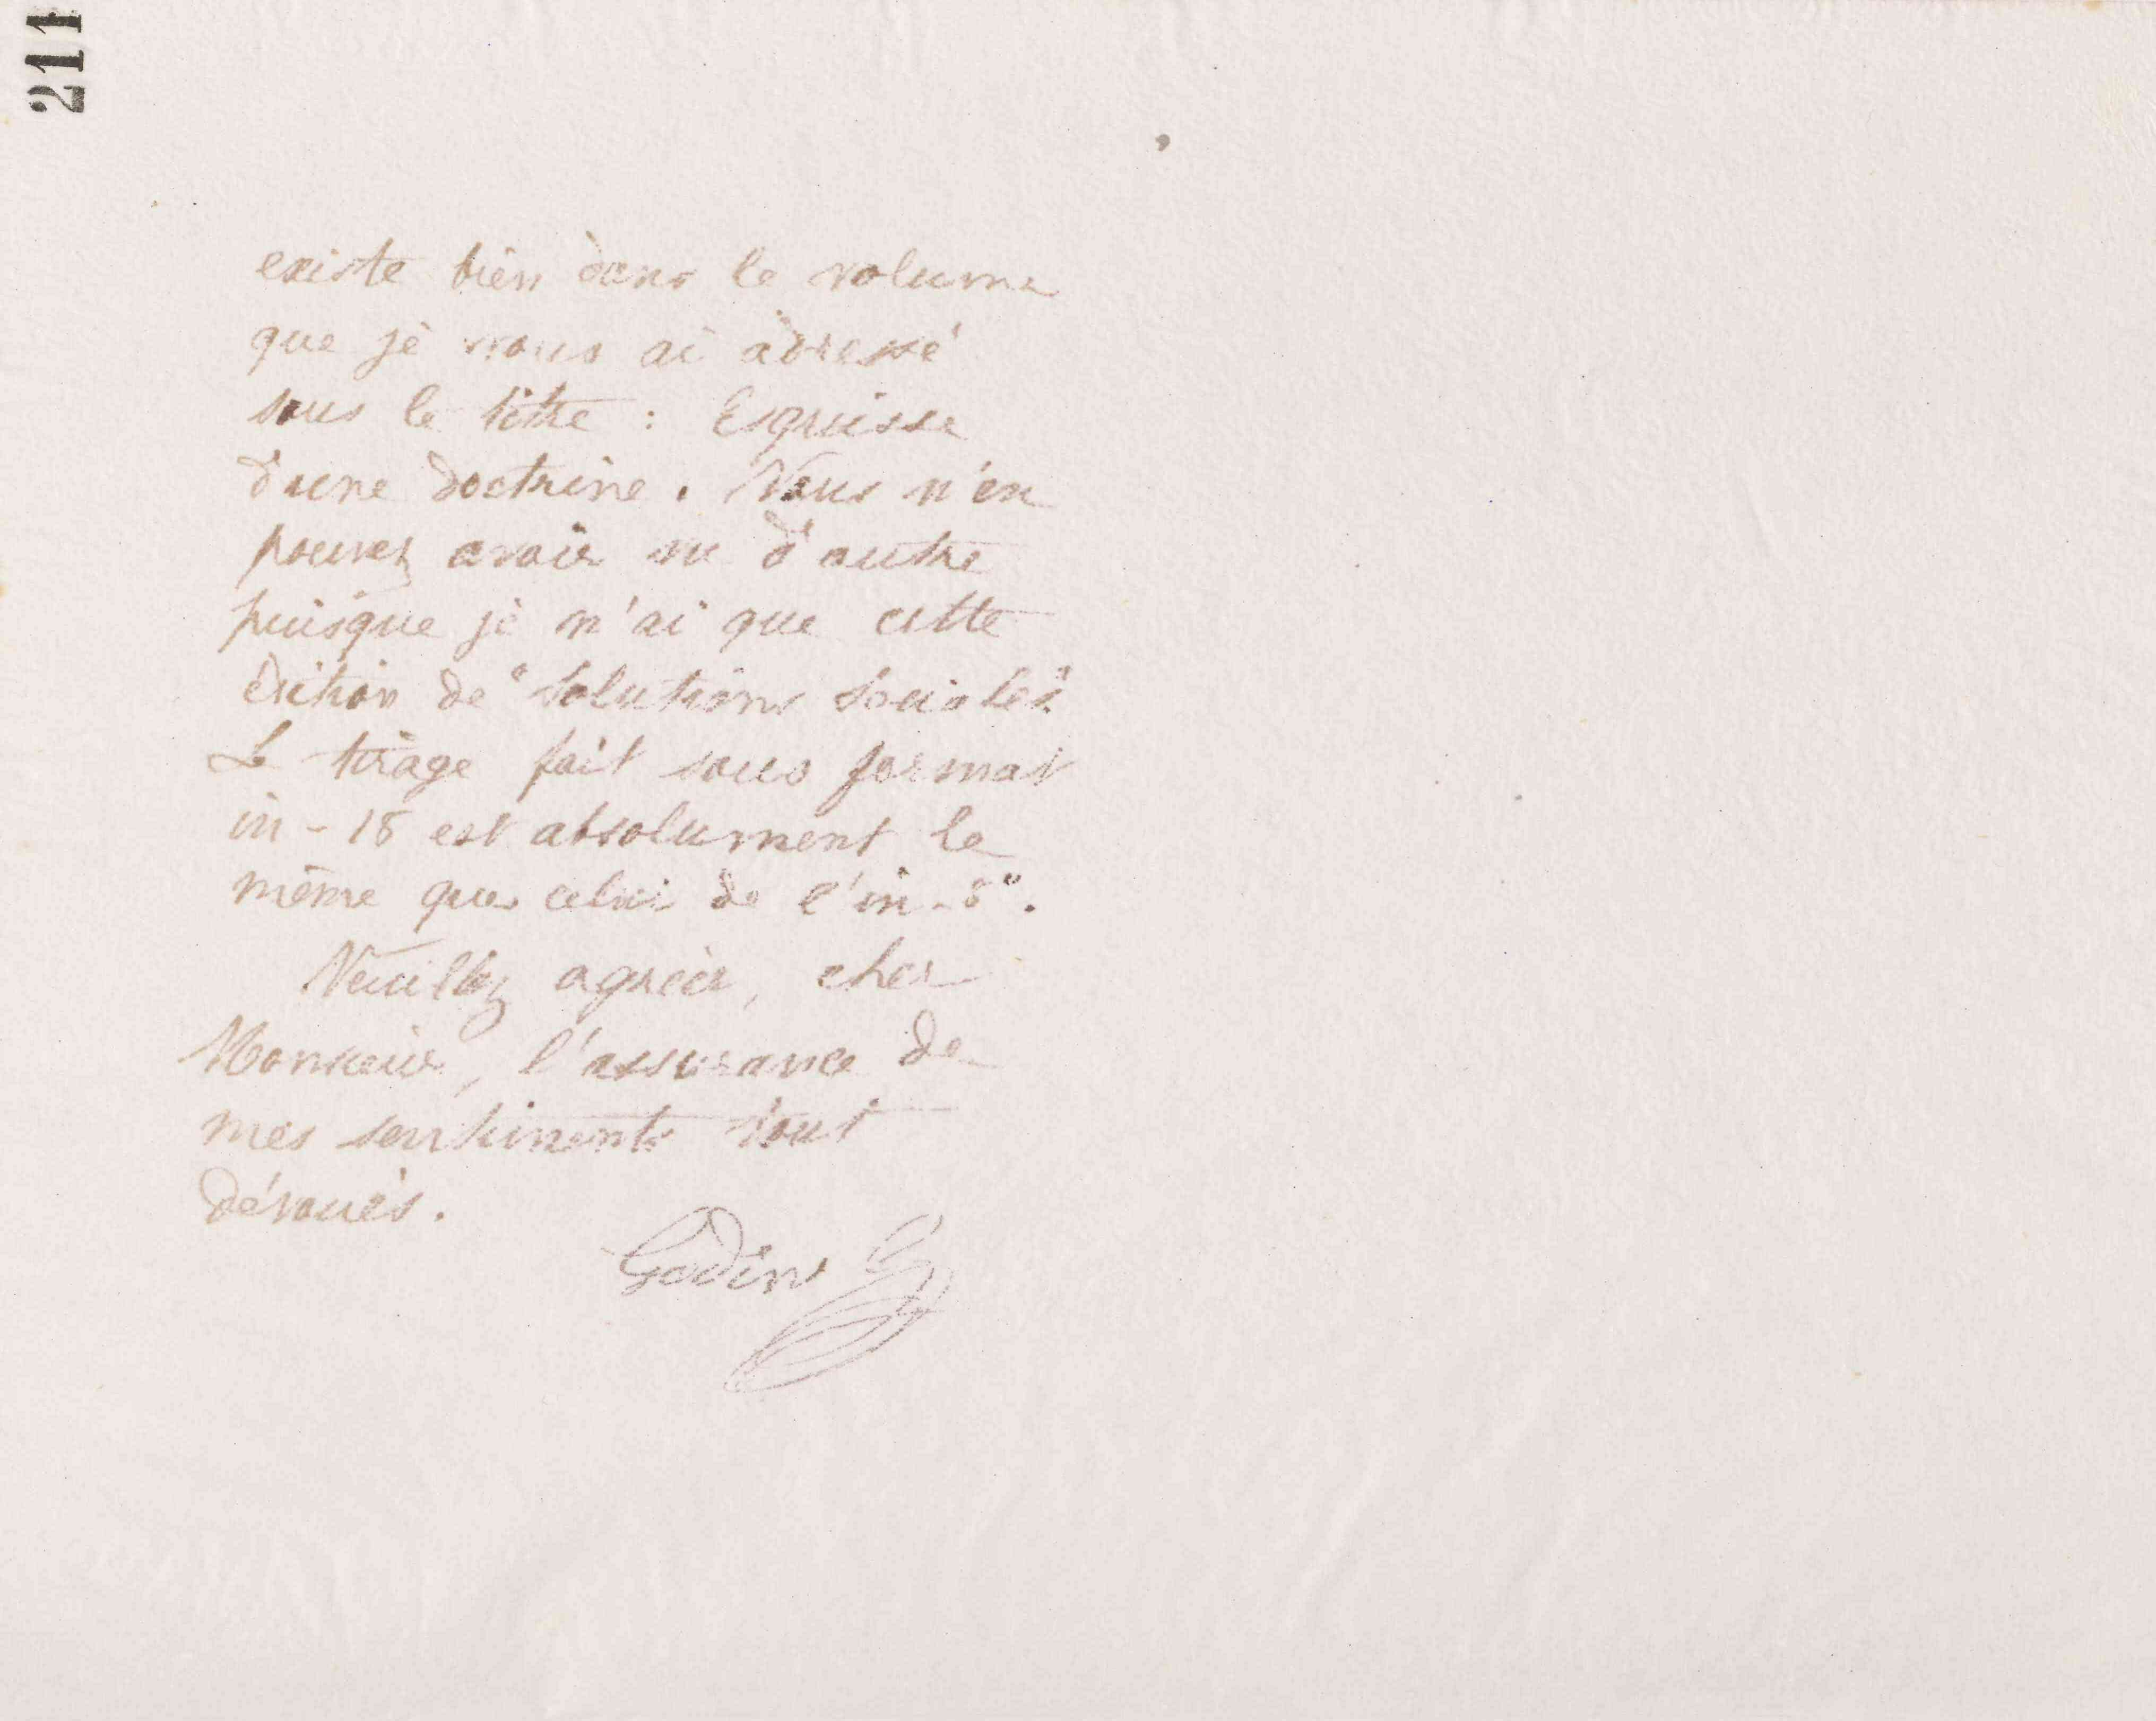 211
existe bien dans le volume
que je vous ai adressé
sous le titre : Esquisse
d'une doctrine. Vous n'en
pouvez avoir vu d'autre
puisque je n'ai que cette
édition de "Solutions sociales".
Le tirage fait sous format
in-18 est absolument le
même que celui de l'in-8°.
Veuillez agréer, cher
Monsieur, l'assurance de
mes sentiments tout
dévoués.
Godin